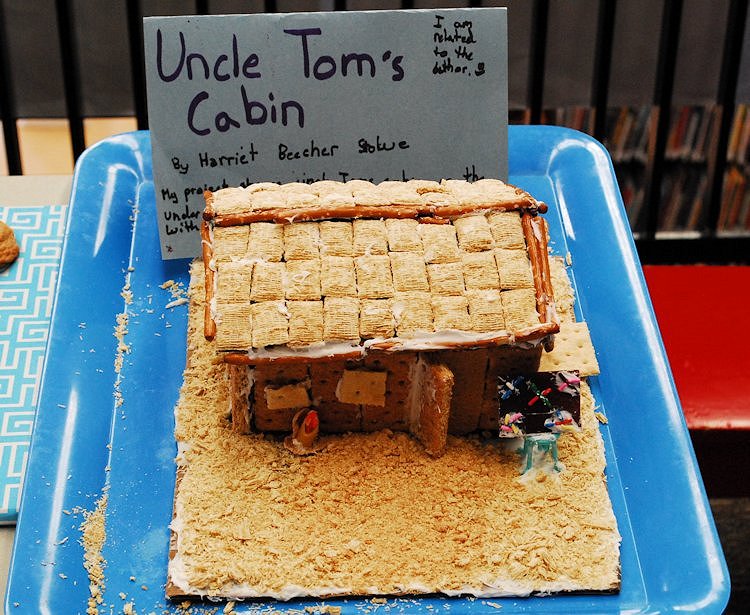 Uncle Tom's
Cabin
I am
related
to the
author.
By Harriet Beecher Stowe
My project
under
with